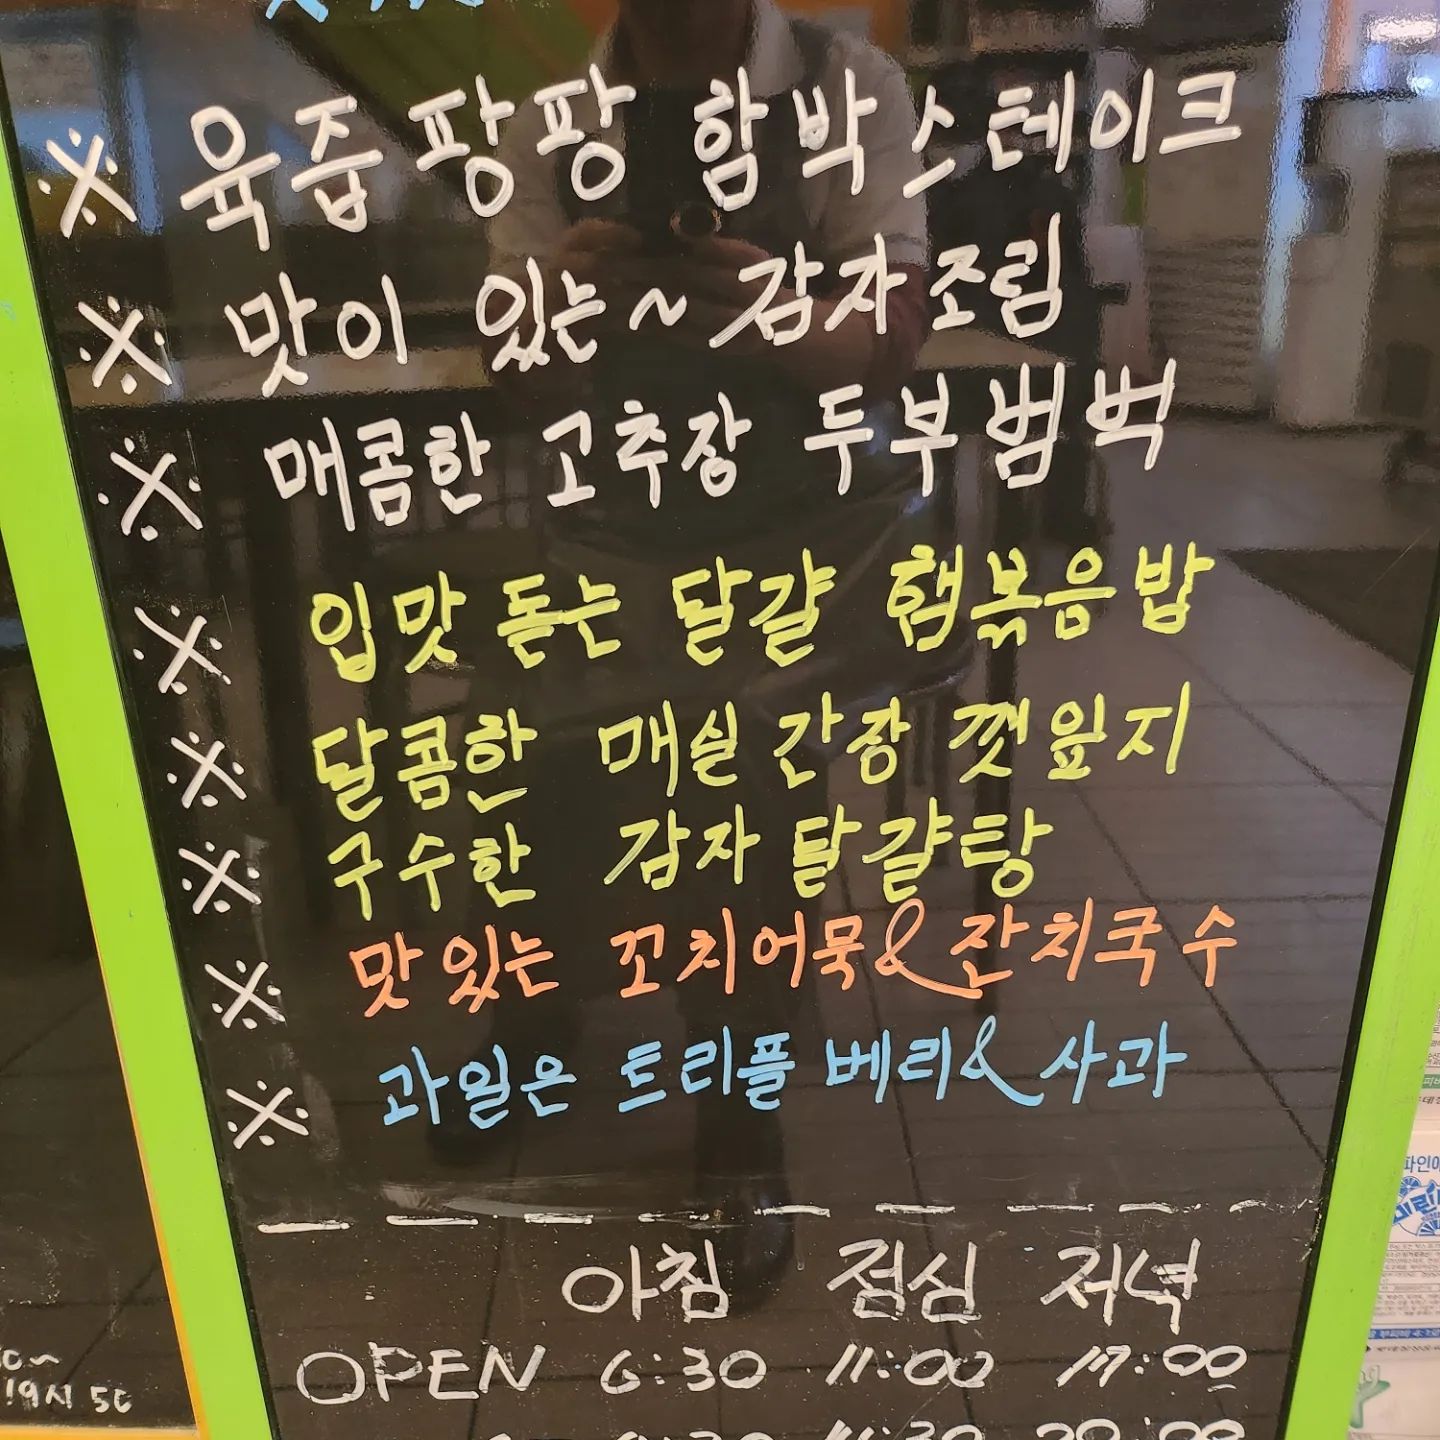 ※ 육즙팡팡 함박스테이크
※ 맛이 있는~ 감자조림
※ 매콤한 고추장 두부범벅
※ 입맛 돋는 달걀 햄볶음밥
※ 달콤한 매실간장 깻잎지
※ 구수한 감자 달걀탕
※ 맛있는 꼬치어묵&잔치국수
※ 과일은 트리플 베리&사과
아침 점심 저녁
OPEN 6:30 11:00 17:00
19시 50